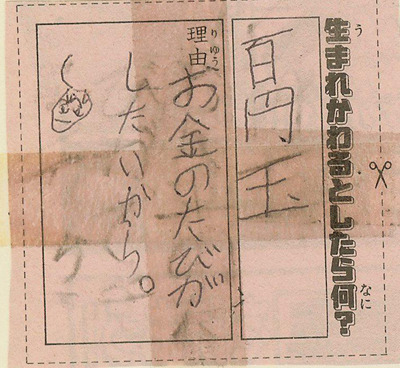 生まれかわるとしたら何?
百円玉
理由
お金のたびが
したいから。